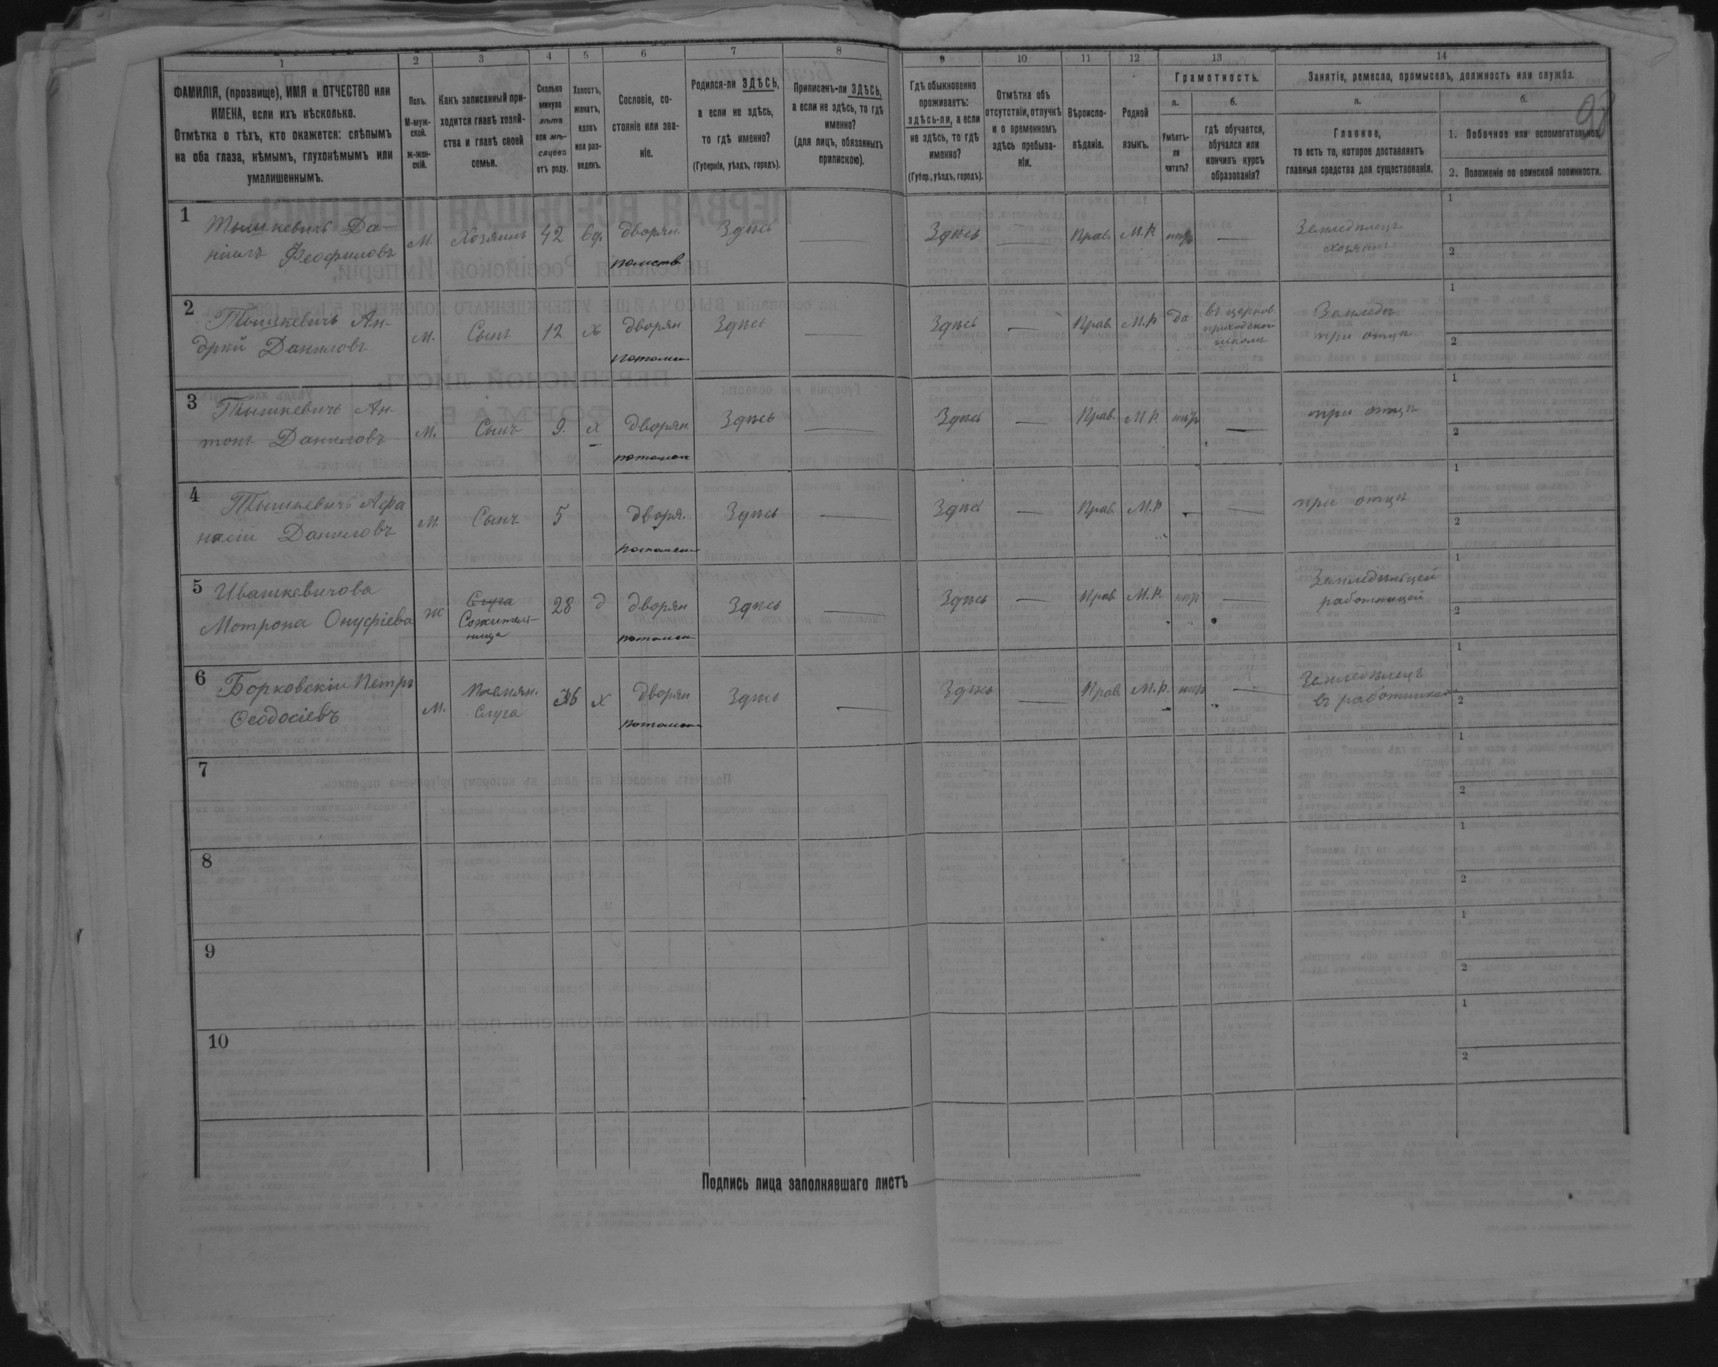 1 2 3 4 5 6 7 8 9 10 11 12 13 14
ФАМИЛІЯ, (прозвище), ИМЯ и ОТЧЕСТВО или
ИМЕНА, если ихъ нѣсколько.
Отмѣтка о тѣхъ, кто окажется: слѣпымъ
на оба глаза, нѣмымъ, глухонѣмымъ или
умалишеннымъ.
Полъ.
М-муж-
ской.
ж-жен-
скій.
Какъ записанный при-
ходится главѣ хозяй-
ства и главѣ своей
семьи.
Сколько
минуло
лѣтъ
или мѣ-
сяцевъ
отъ роду.
Холостъ,
женатъ,
вдовъ
или раз-
веденъ.
Сословіе, со-
стояніе или зва-
ніе.
Родился-ли ЗДѢСЬ,
а если не здѣсь,
то гдѣ именно?
(Губернія, уѣздъ, городъ).
Приписанъ-ли ЗДѢСЬ,
а если не здѣсь, то гдѣ
именно?
(для лицъ, обязанныхъ
припискою).
Гдѣ обыкновенно
проживаетъ:
здѣсь-ли, а если
не здѣсь, то гдѣ
именно?
(Губер., уѣздъ, городъ).
Отмѣтка объ
отсутствіи, отлучкѣ
и о временномъ
здѣсь пребыва-
ніи.
Вѣроиспо-
вѣданіе.
Родной
языкъ.
Грамотность.
а.
Умѣетъ-
ли
читать?
б.
гдѣ обучается,
обучался или
кончилъ курсъ
образованія?
Занятіе, ремесло, промыселъ, должность или служба.
а.
Главное,
то есть то, которое доставляетъ
главныя средства для существованія.
б.
1. Побочное или вспомогательное.
2. Положеніе по воинской повинности.
1
Тышкевичъ Да-
ніилъ Феофиловъ
М. Хозяинъ 42 вд. дворян. Здѣсь Здѣсь Прав. М.Р. нѣтъ
Земледѣлецъ
хозяинъ
1
2
2
Тышкевичъ Ан-
дрей Даниловъ
М. Сынъ 12 х дворян потомы Здѣсь Здѣсь Прав М.Р да
въ церков
приходской
школѣ
Земледѣ
при отцѣ
1
2
3
Тышкевичъ Ан-
тонъ Даниловъ
М. Сынъ 9. х дворян потомы Здѣсь Здѣсь Прав М.Р. нѣтъ
при отцѣ
1
2
4
Тышкевичъ Афа
насій Даниловъ
М. Сынъ 5 дворя. потомы Здѣсь Здѣсь Прав М.Р
при отцѣ
1
2
5
Ивашкевичова
Мотрона Онуфріева
ж
Слуга
Сожитель-
ница
28 д дворян потомы Здѣсь Здѣсь Прав М.Р. нѣтъ
работницей
1
2
6
Борковскій Петръ
Феодосіевъ
М.
Слуга
х дворян потомы Здѣсь Здѣсь Прав М.Р. нѣтъ
Земледѣлецъ
въ работникахъ
1
2
7
1
2
8
1
2
9
1
2
10
1
2
Подпись лица заполнявшаго листъ